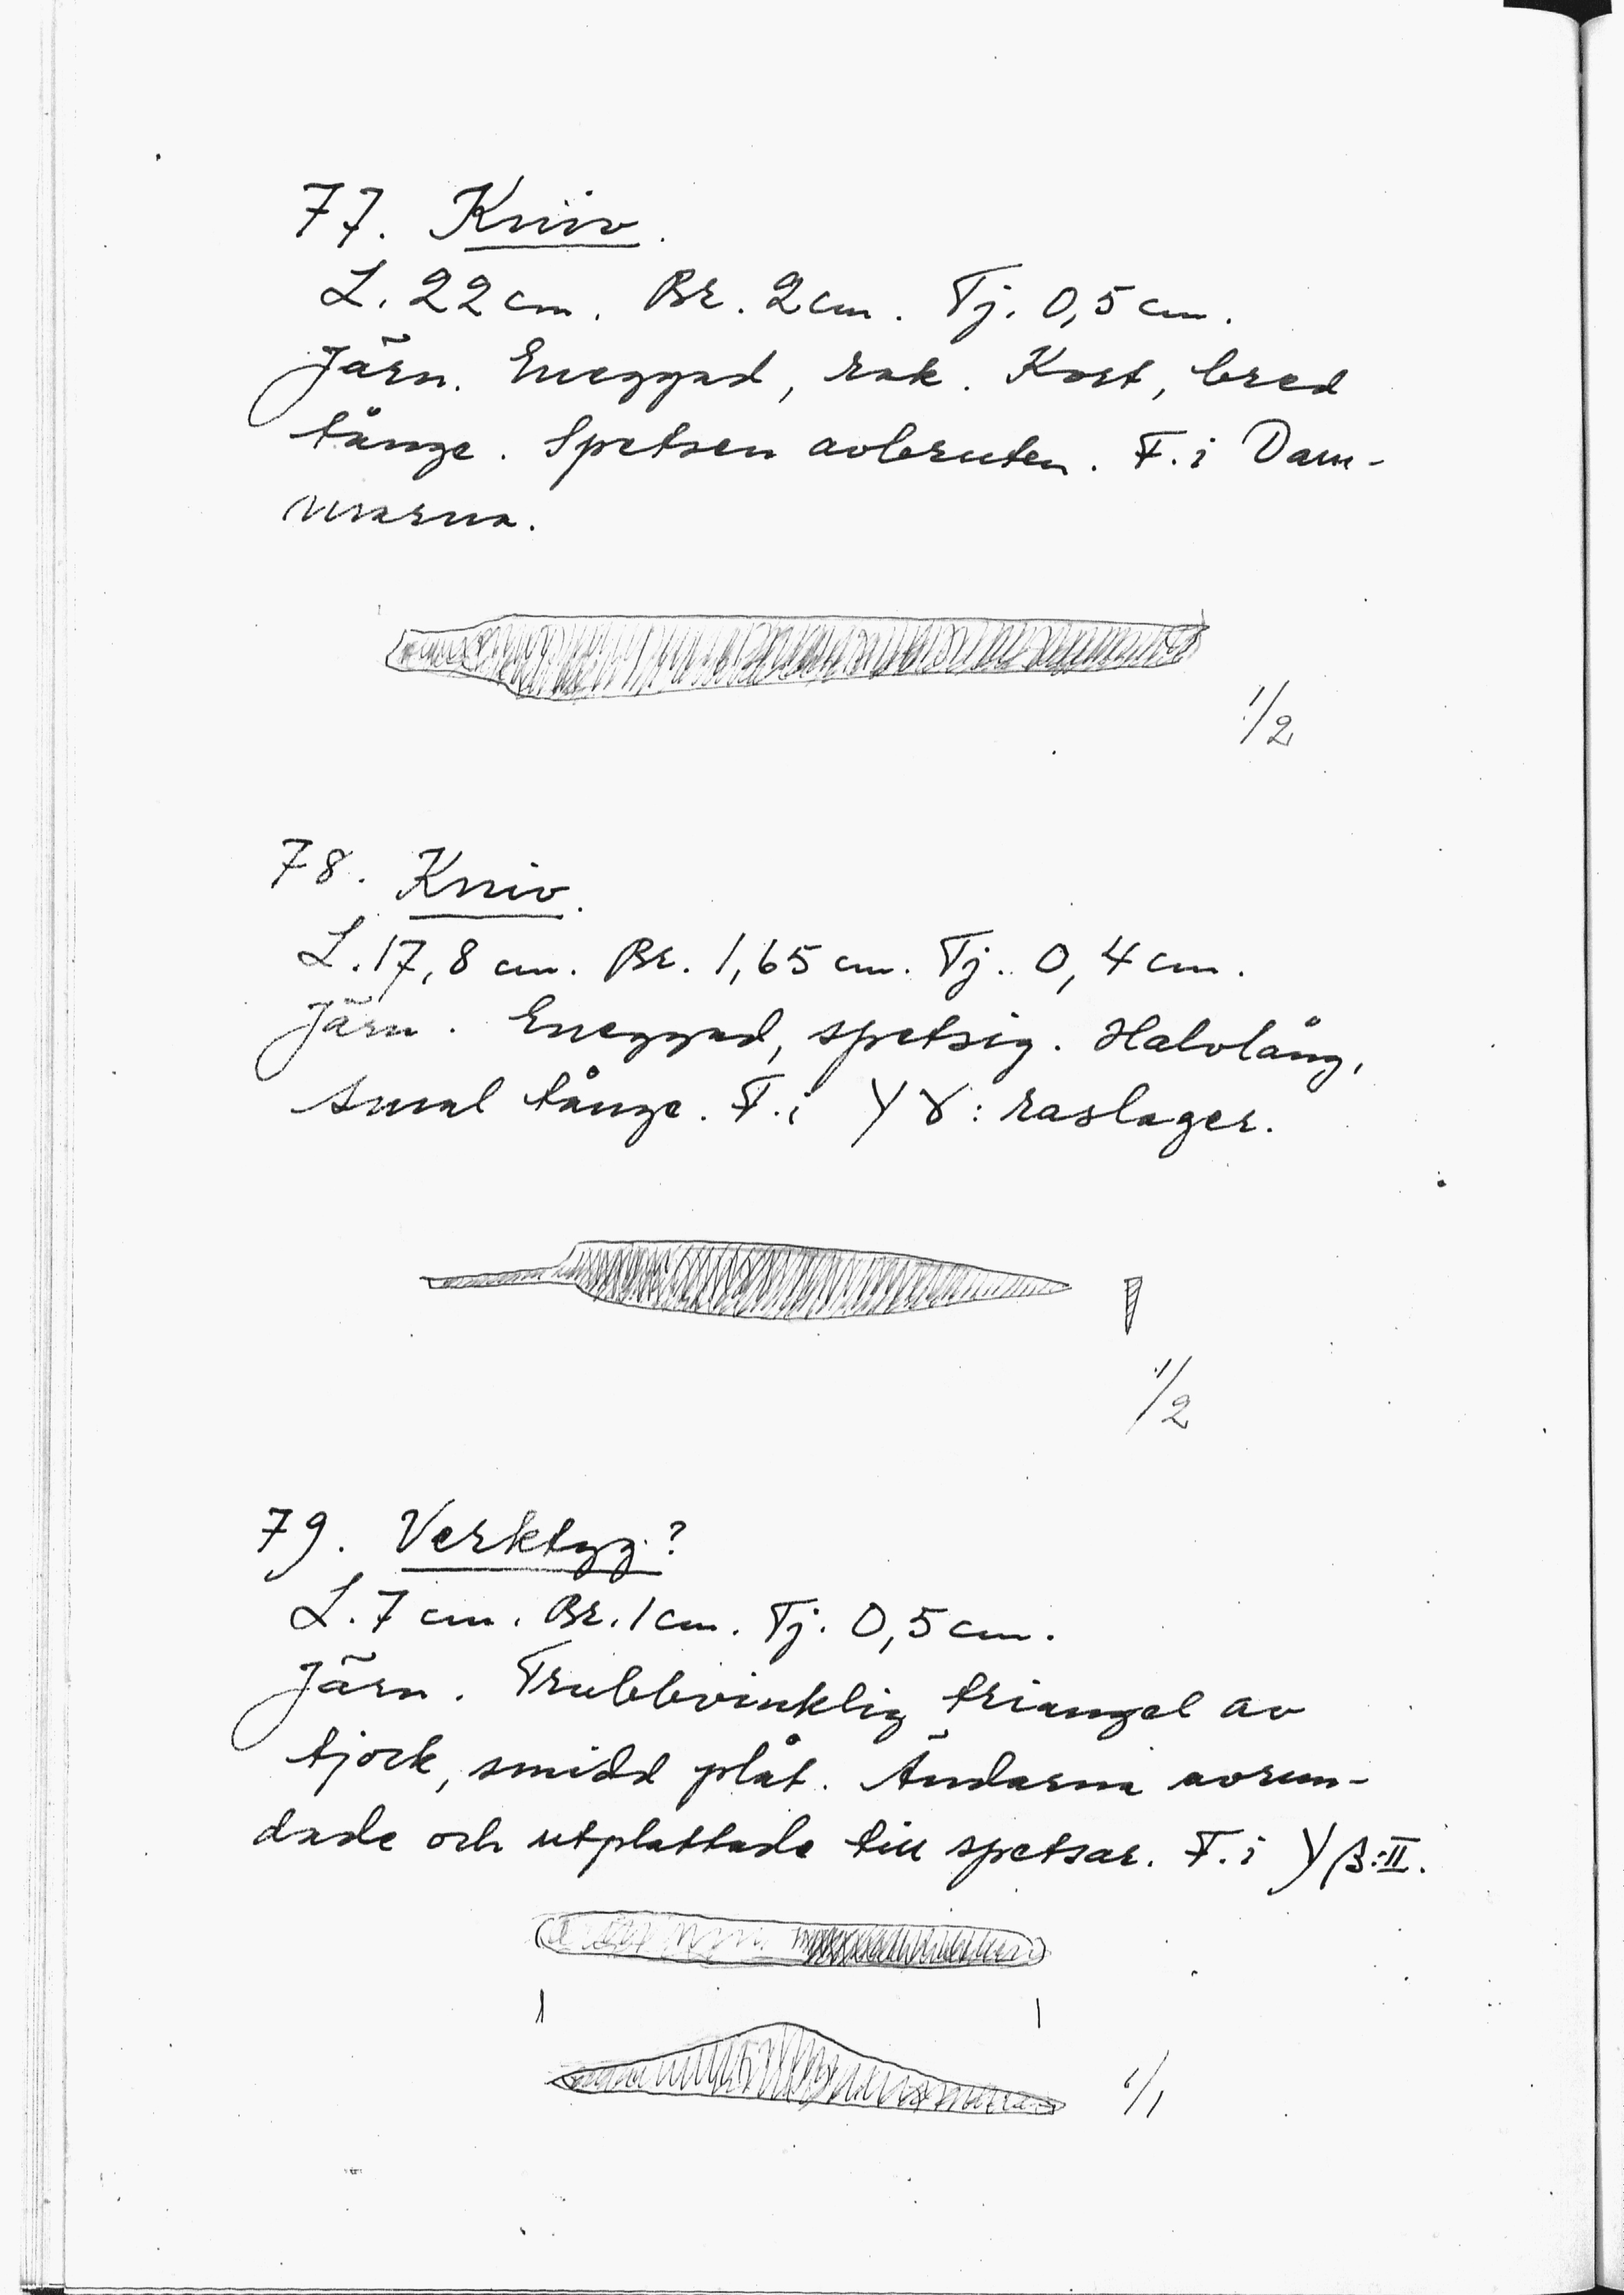 77. Kniv.
L. 22 cm. Br. 2 cm. Tj. 0,5 cm.
Järn. Eneggad, rak. Kort, bred
tånge. Spetsen avbruten. F. i Dam-
marna.
1/2
78. Kniv.
L. 17,8 cm. Br. 1,65 cm. Tj. 0,4 cm.
Järn. Eneggad, spetsig. Halvlång,
smal tånge. F. i Yγ: raslager.
1/2
79. Verktyg?
L. 7 cm. Br. 1 cm. Tj. 0,5 cm.
Järn. Trubbvinklig triangel av
tjock, smidd plåt. Ändarna avrun-
dade och utplattade till spetsar. F. i Yβ:II.
1/1